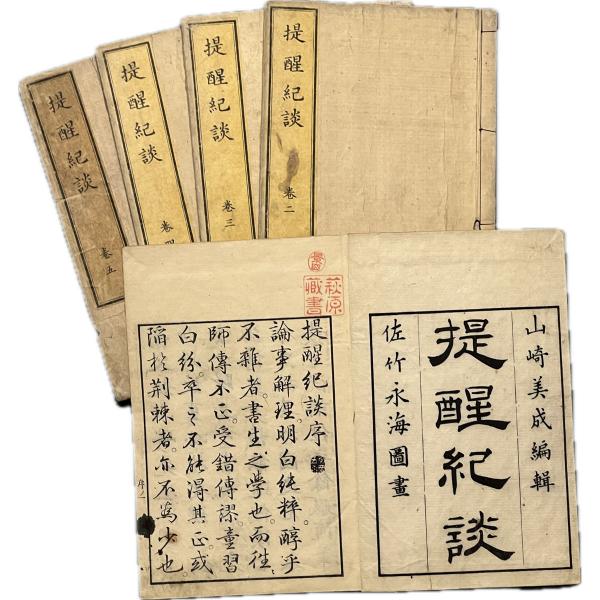 提醒紀談
卷二
提醒紀談
卷三
提醒紀談
卷四
提醒紀談
卷五
山崎美成編輯
提醒紀談
佐竹永海圖畫
萩原
藏書
提醒紀談序
論事解理明白純粹醇乎
不雜者書生之學也而往〻
師傳不正受錯傳謬童習
白紛卒之不能得其正或
陷於荆棘者亦不爲少也
序一